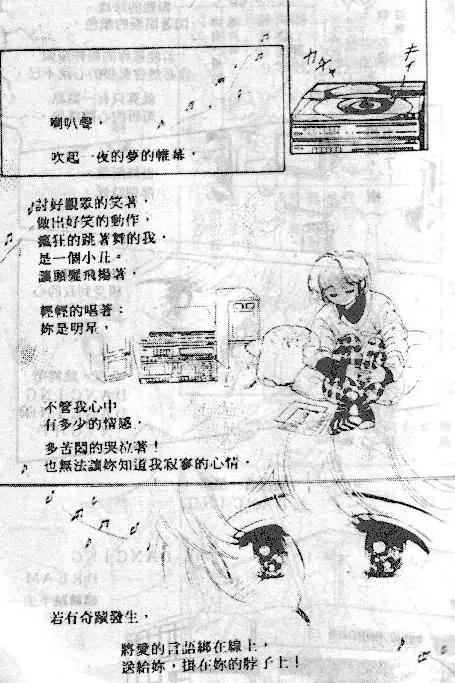 カチャ
キュ
喇叭聲，
吹起一夜的夢的帷幕，
討好觀眾的笑著，
做出好笑的動作，
瘋狂的跳著舞的我，
是一個小丑。
讓頭髮飛揚著，
輕輕的唱著：
妳是明星，
不管我心中
有多少的情感，
多苦悶的哭泣著！
也無法讓妳知道我寂寥的心情，
若有奇蹟發生，
將愛的言語綁在線上，
送給妳，掛在妳的脖子上！